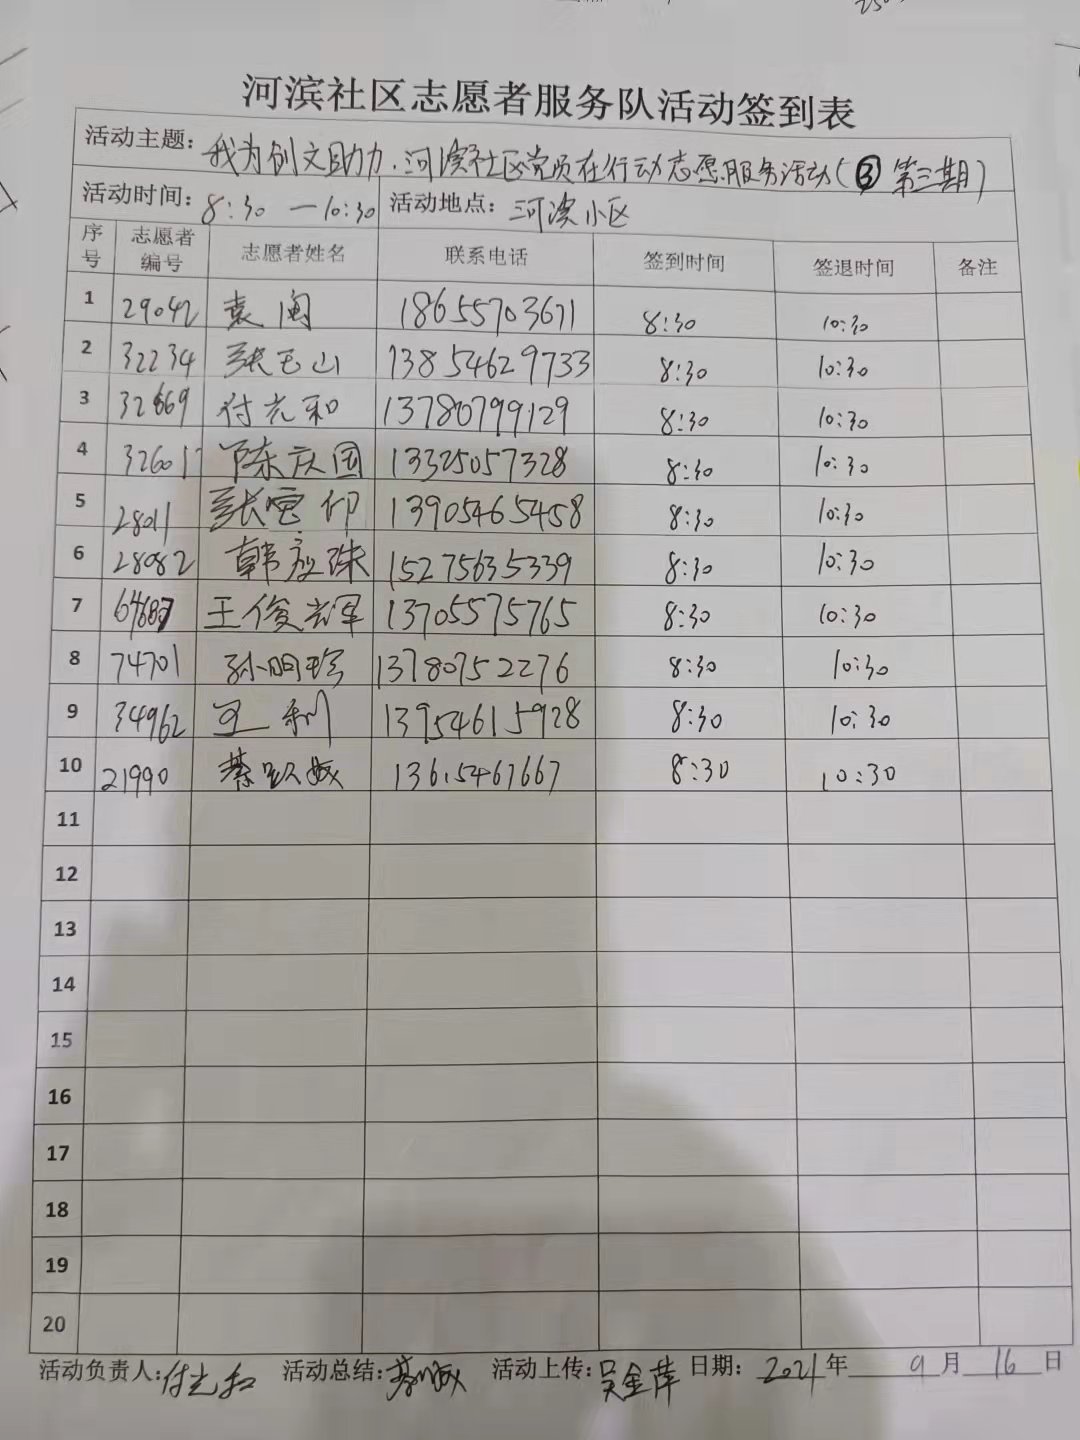 河滨社区志愿者服务队活动签到表
活动主题：我为创文助力.河滨社区党员在行动志愿服务活动(③第三期)
活动时间：8:30—10:30 活动地点：河滨小区
序号 志愿者编号 志愿者姓名 联系电话 签到时间 签退时间 备注
1 29042 袁闽 18655703671 8:30 10:30
2 32234 张玉山 13854629733 8:30 10:30
3 32669 付光和 13780799129 8:30 10:30
4 326017 陈庆国 13325057328 8:30 10:30
5 28011 张 仰 13905465458 8:30 10:30
6 28082 韩 珠 15275635339 8:30 10:30
7 王俊 13705575765 8:30 10:30
8 74701 孙明珍 13780752276 8:30 10:30
9 34962 王利 13954615928 8:30 10:30
10 21990 綦 敏 13615461667 8:30 10:30
11
12
13
14
15
16
17
18
19
20
活动负责人：付光和 活动总结：綦 敏 活动上传：吴金萍 日期：2021年9月16日